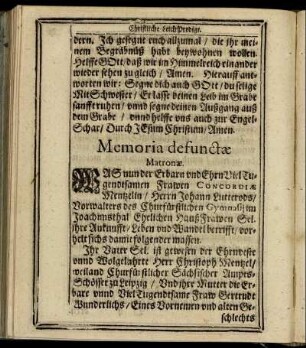 Christliche LeichPredigt.
dern. Ich gesegne euch allzumal / die ihr mei-
nem Begräbnüß habt beywohnen wollen.
Helffe GOtt / daß wir im Himmelreich einander
wieder sehen zugleich / Amen. Hierauff ant-
worten wir: Segne dich auch GOtt / du selige
MitSchwester / Er lasse deinen Leib im Grabe
sanffte ruhen / vnnd segne deinen Außgang auß
dem Grabe / vnnd helffe vns auch zur Engel-
Schar / Durch JEsum Christum / Amen.
Memoria defunctæ
Matronæ.
WAS nun der Erbarn vnd Ehrn Viel Tu-
gendtsamen Frawen CONCORDIÆ
Mentzelin / Herrn Johann Lutterods /
Vorwalters des Churfürstlichen Gymnasii im
Joachimsthal Ehelichen Hauß Frawen Sel.
ihre Ankunfft / Leben vnd Wandel betrifft / vor-
helt sichs damit folgender massen.
Ihr Vater Sel. ist gewesen der Ehrnveste
vnnd Wolgelahrte Herr Christoph Mentzel /
weiland Churfürstlicher Sächsischer Ampts-
Schösser zu Leipzig / Vnd ihre Mutter die Er-
bare vnnd Viel Tugendtsame Fraw Gertrudt
Wunderlichs / Eines Vornemen vnd alten Ge-
schlechts